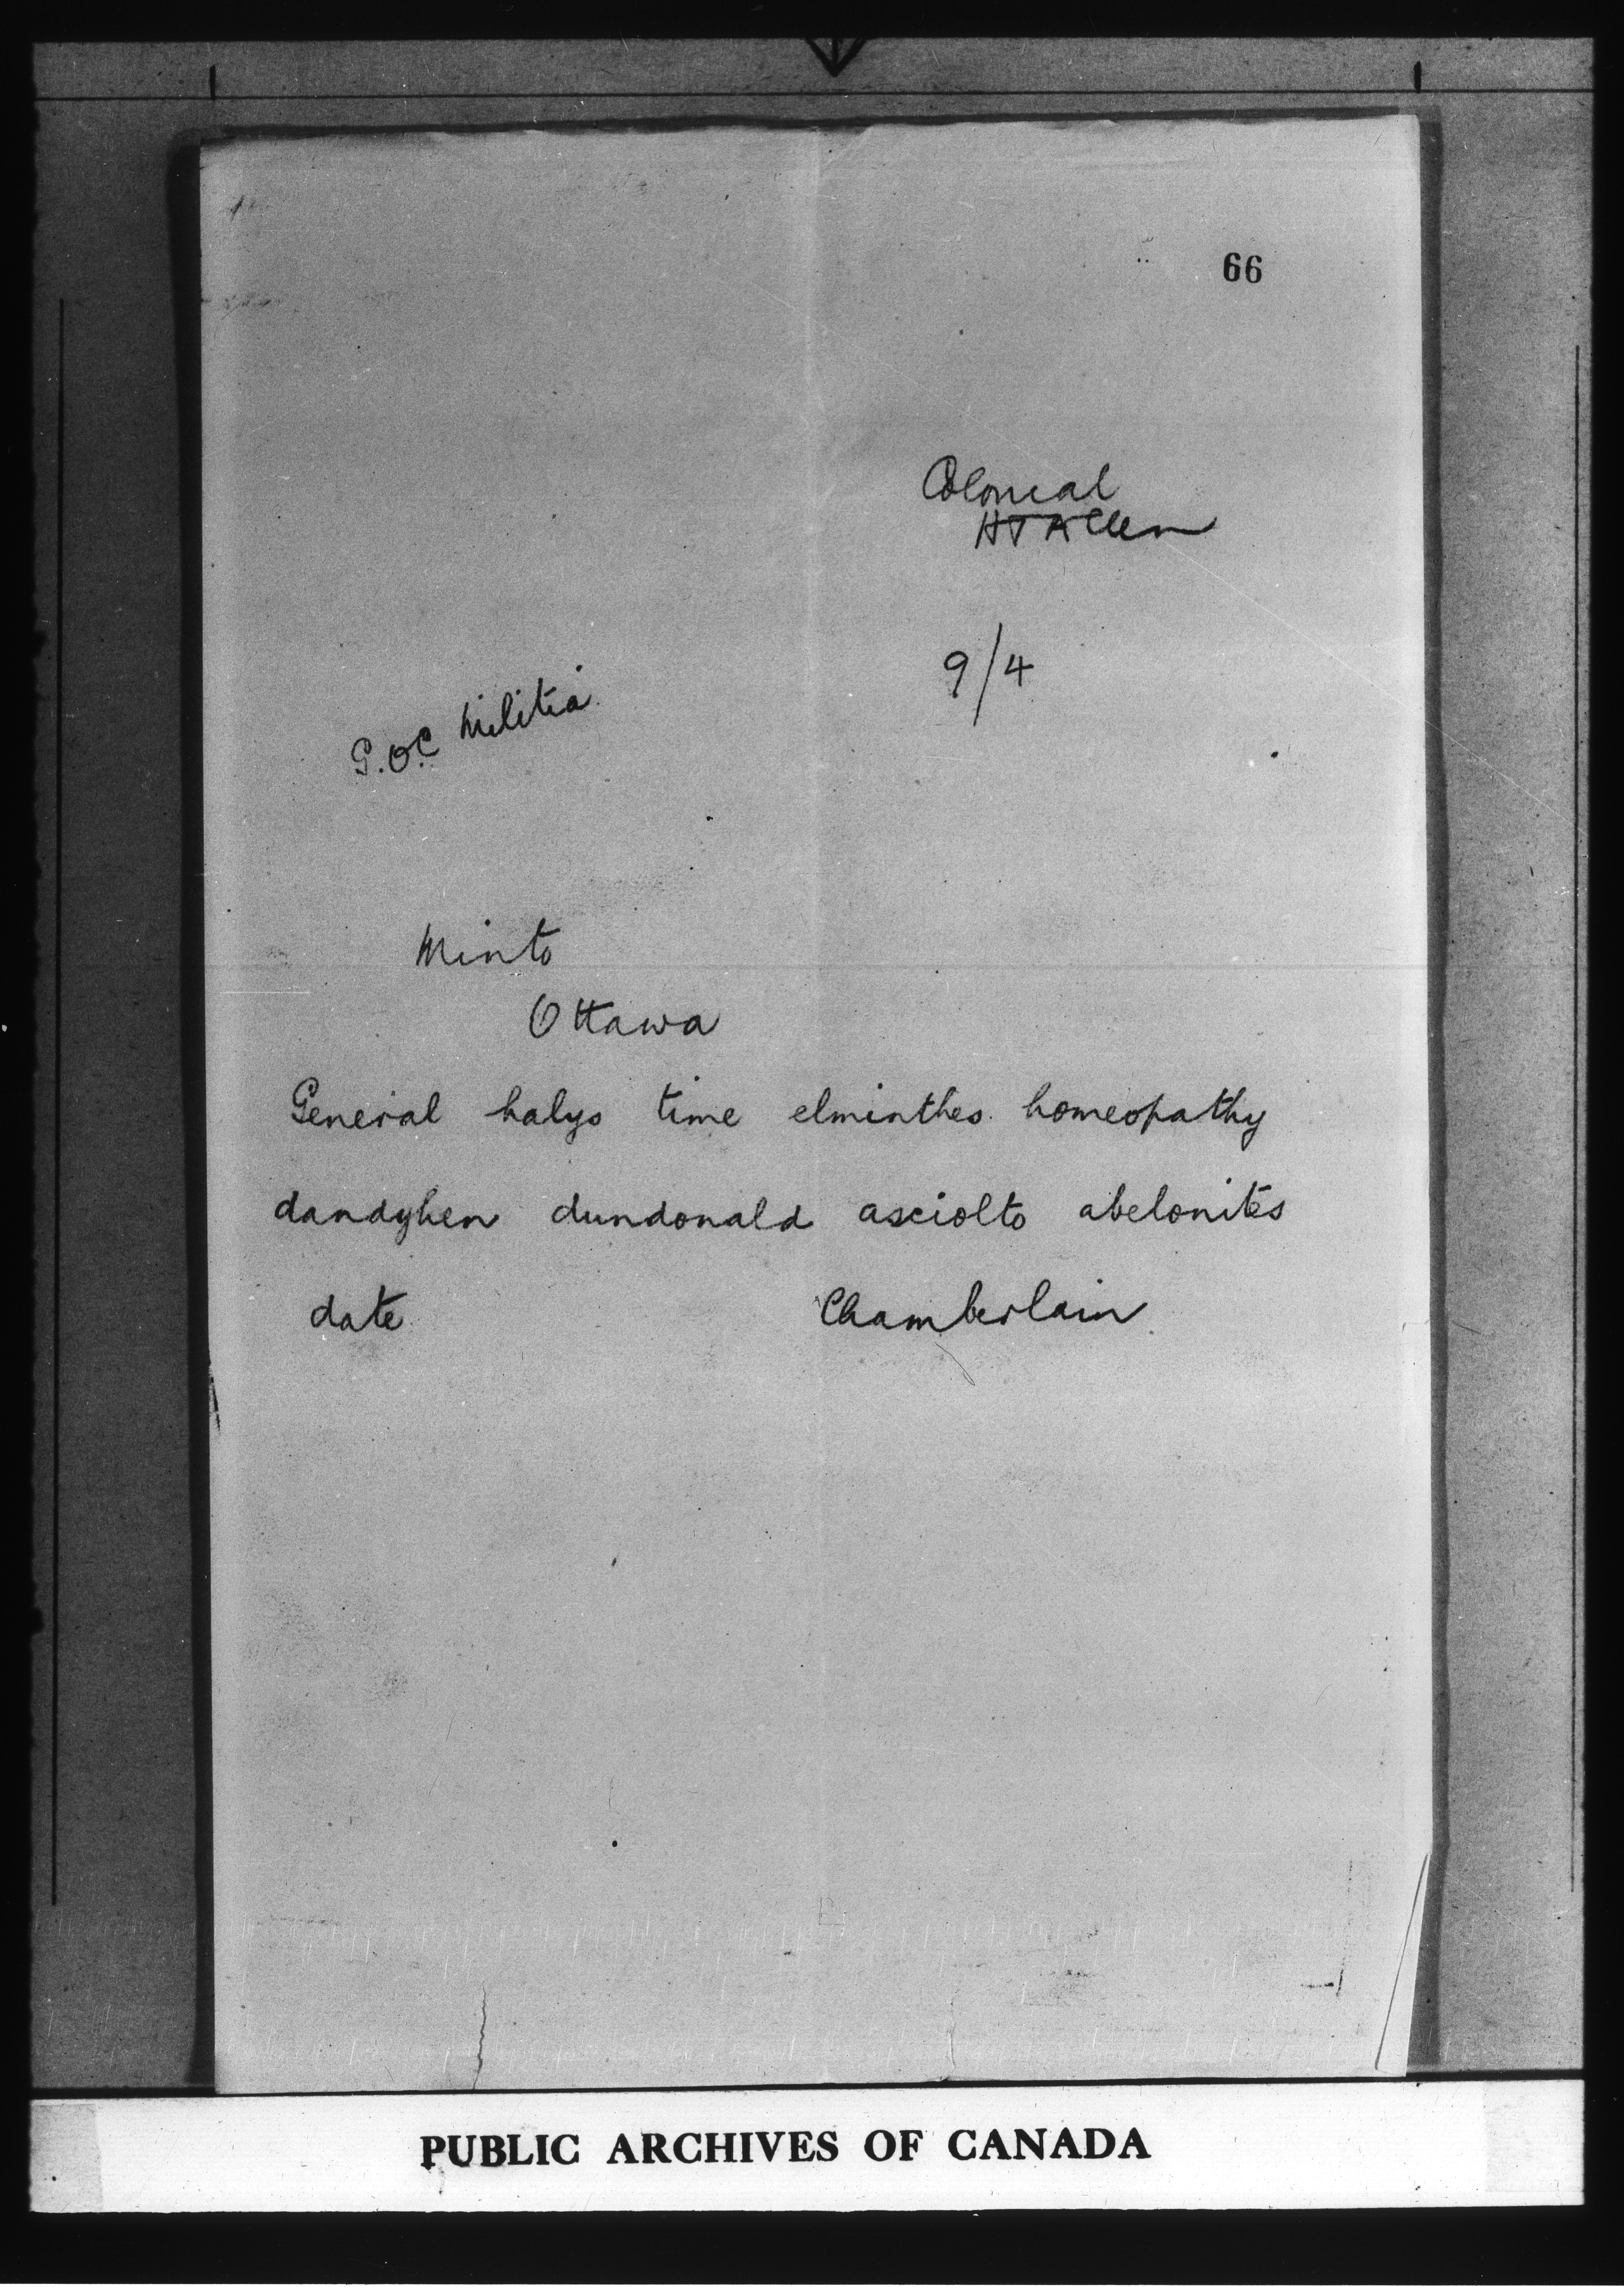 66
Colonial
HTAllen
9/4
G.O.C. Militia
Minto
Ottawa
General halys time elminthes homeopathy
dandyhen dundonald asciolto abelonites
date Chamberlain
PUBLIC ARCHIVES OF CANADA